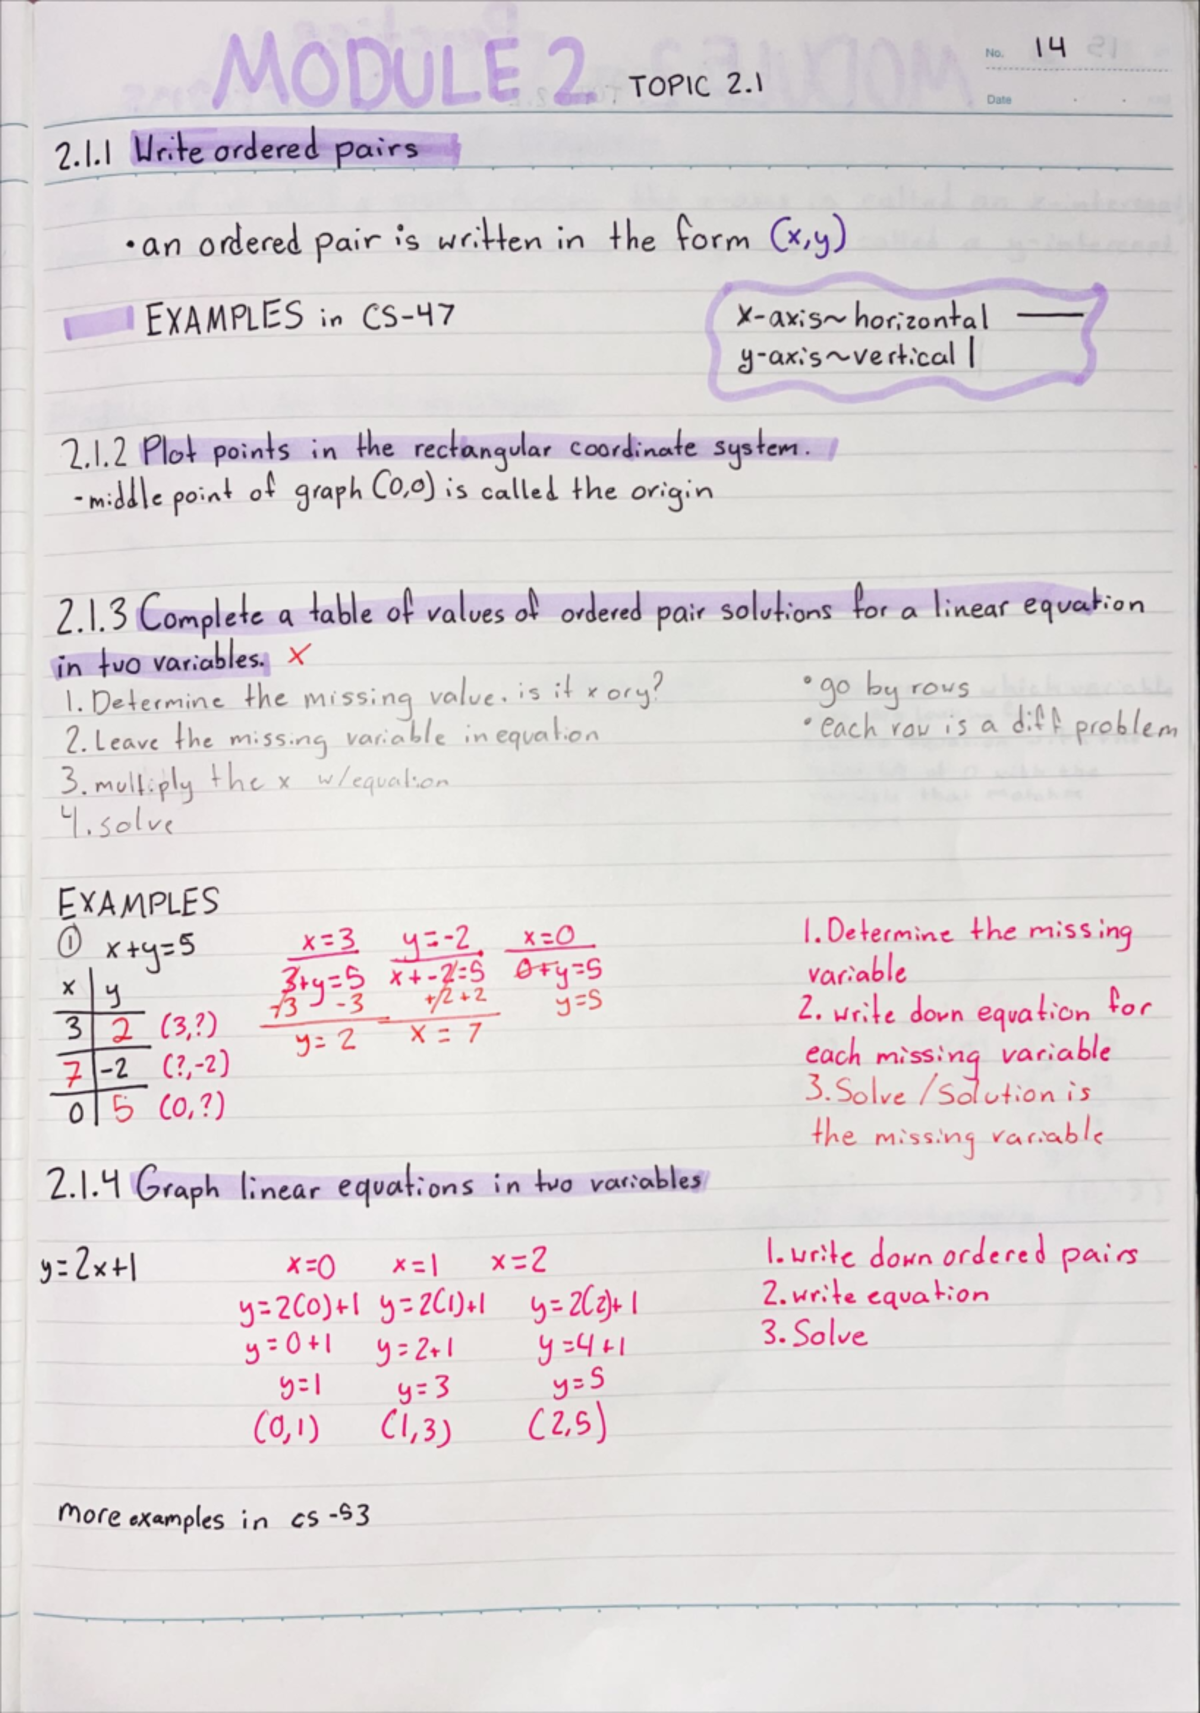 MODULE 2 TOPIC 2.1
No. 14
Date
2.1.1 Write ordered pairs
• an ordered pair is written in the form (x,y)
EXAMPLES in CS-47
x-axis~horizontal —
y-axis~vertical |
2.1.2 Plot points in the rectangular coordinate system.
-middle point of graph (0,0) is called the origin
2.1.3 Complete a table of values of ordered pair solutions for a linear equation
in two variables. x
1. Determine the missing value. is it x or y?
2. Leave the missing variable in equation
3. multiply the x w/equation
4. solve
• go by rows
• each row is a diff problem
EXAMPLES
① x+y=5
x | y
3 | 2 (3,?)
7 | -2 (?,-2)
0 | 5 (0,?)
x=3 y=-2 x=0
3+y=5 x+-2=5 0+y=5
-3 -3 +2 +2 y=5
y=2 x=7
1. Determine the missing
variable
2. write down equation for
each missing variable
3. Solve / Solution is
the missing variable
2.1.4 Graph linear equations in two variables
y=2x+1
x=0 x=1 x=2
y=2(0)+1 y=2(1)+1 y=2(2)+1
y=0+1 y=2+1 y=4+1
y=1 y=3 y=5
(0,1) (1,3) (2,5)
1. write down ordered pairs
2. write equation
3. Solve
more examples in cs-53